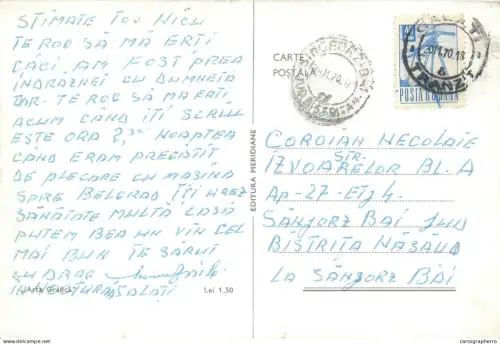 STIMATE TOV NICU
TE ROG SĂ MĂ ERȚI
CĂCI AM FOST PREA
ÎNDRĂZNEȚ CU DUMNEATA
DAR TE ROG SĂ MĂ ERȚI
ACUM CÂND ÎȚI SCRIU
ESTE ORA 2,30 NOAPTEA
CÂND ERAM PREGĂTIT
DE PLECARE CU MAȘINA
SPRE BELGRAD ÎȚI UREZ
SĂNĂTATE MULTĂ CA SĂ
PUTEM BEA UN VIN CEL
MAI BUN TE SĂRUT
CU DRAG
Lei 1,50
EDITURA MERIDIANE
CARTE
POSTALA
GALATI
20.11.70.18
6
TRANZIT
POSTA ROMANA
COROIAN NECOLAIE
STR.
IZVOARELOR BL. A
Ap-27-Etj 4
SÂNJORZ BĂI JUD
BISTRIȚA NĂSĂUD
LA SÂNJORZ BĂI
cartographerro.com